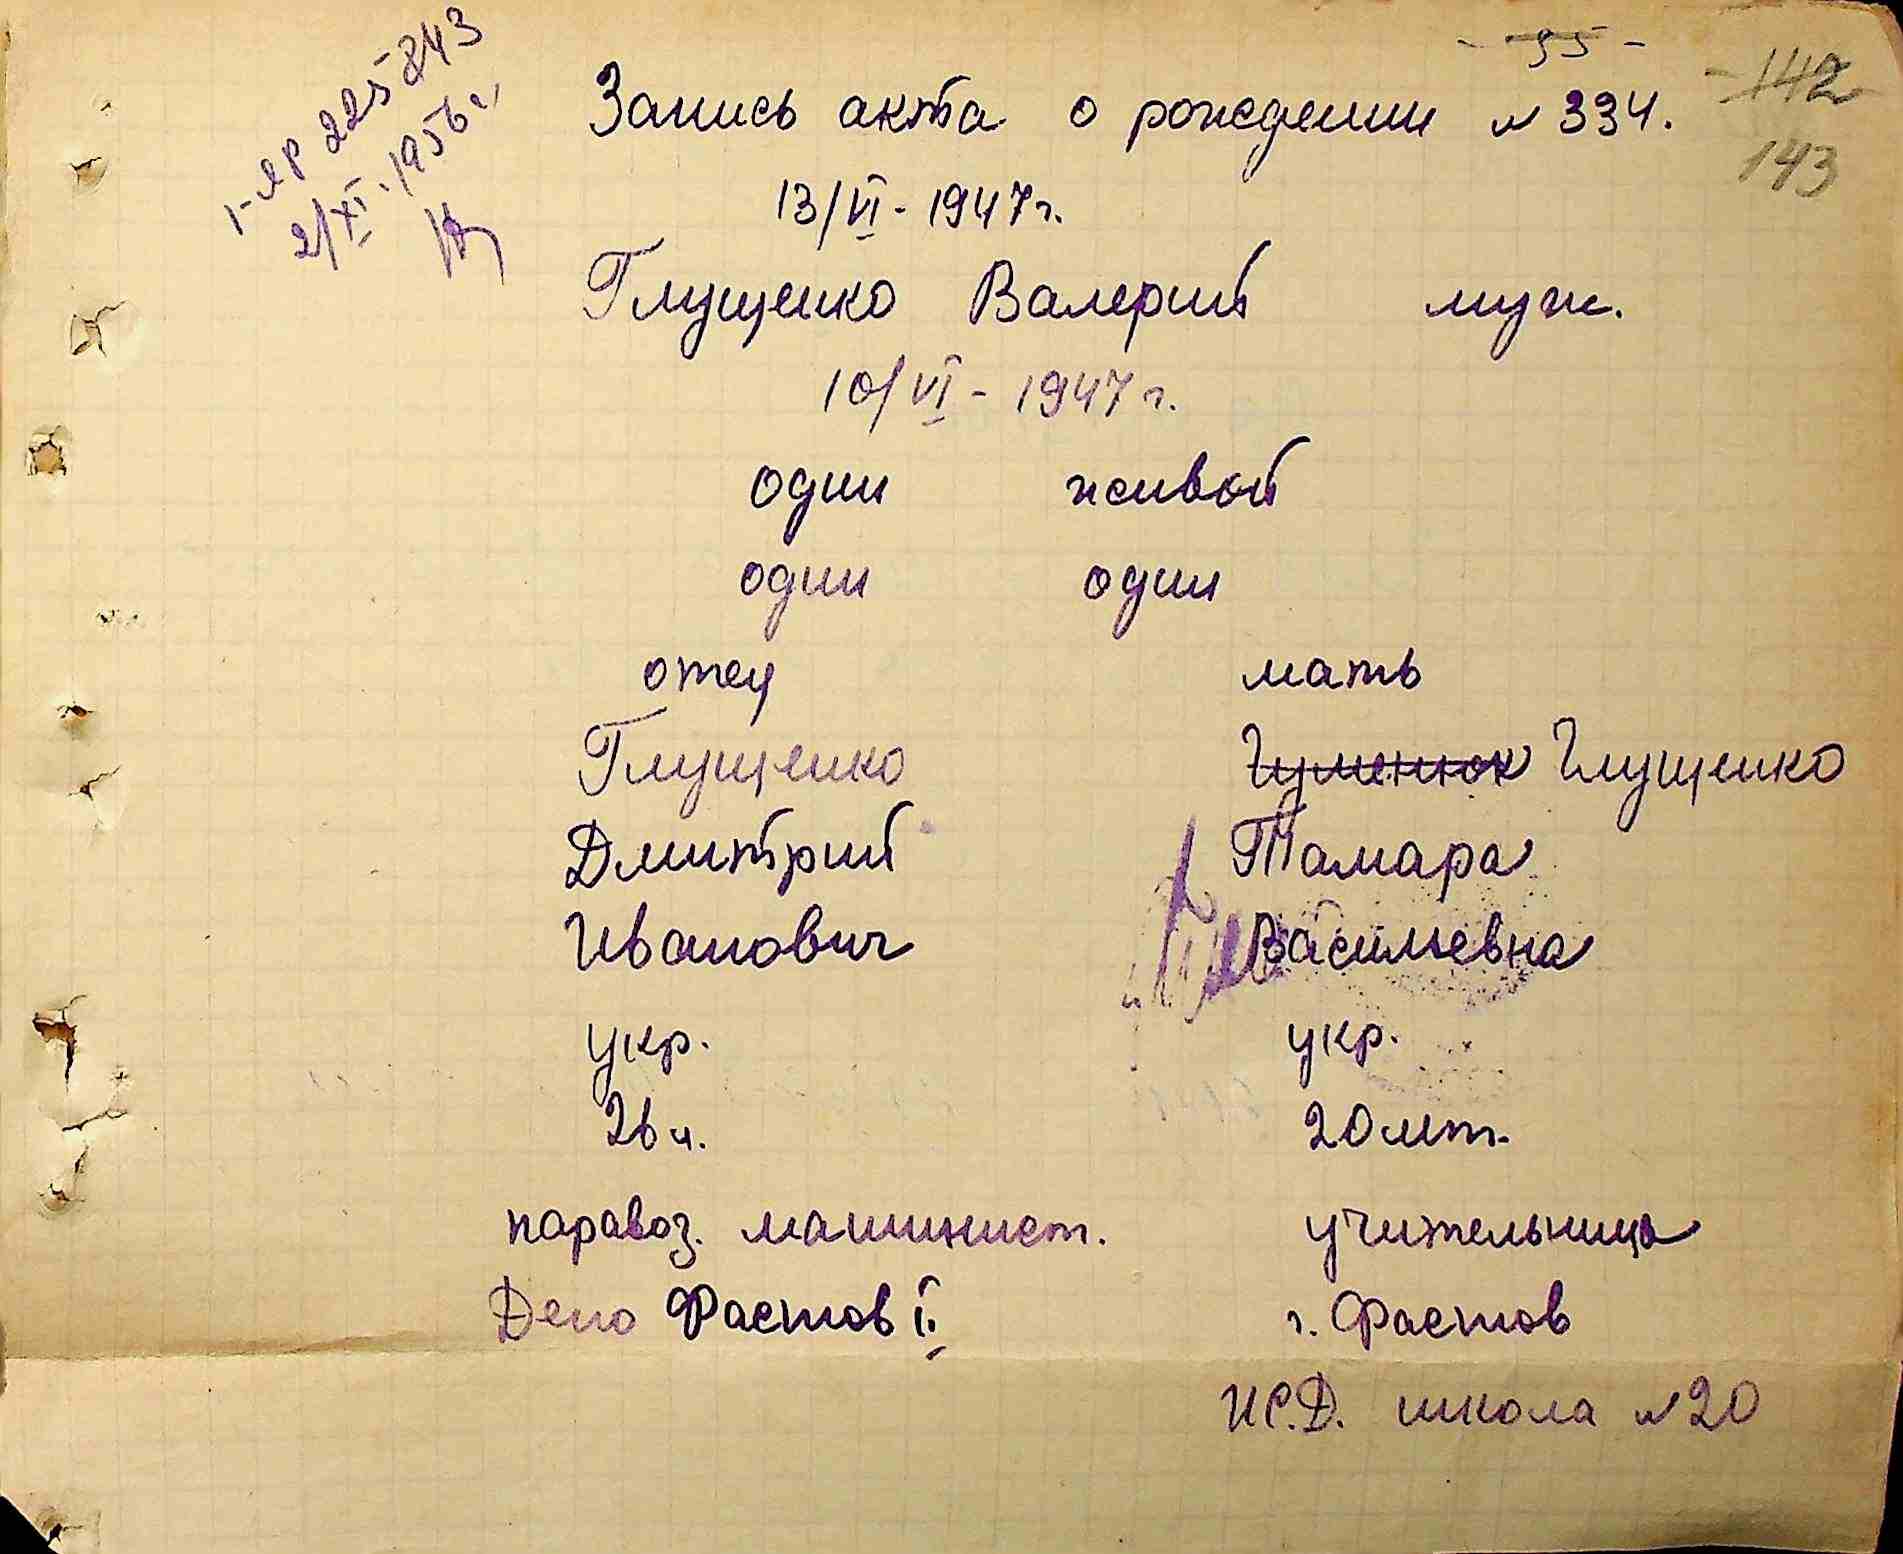 - 95 -
- 142
143
I-ЯР 225843
2/XI. 1956 г.
Запись акта о рождении № 334.
13/VI - 1947 г.
Глущенко Валерий муж.
10/VI - 1947 г.
один живой
один один
отец мать
Глущенко Гуменюк Глущенко
Дмитрий Тамара
Иванович Васильевна
укр. укр.
26 л. 20 лет.
паравоз. машинист. учительница
Депо Фастов II. г. Фастов
Ж.Д. школа № 20